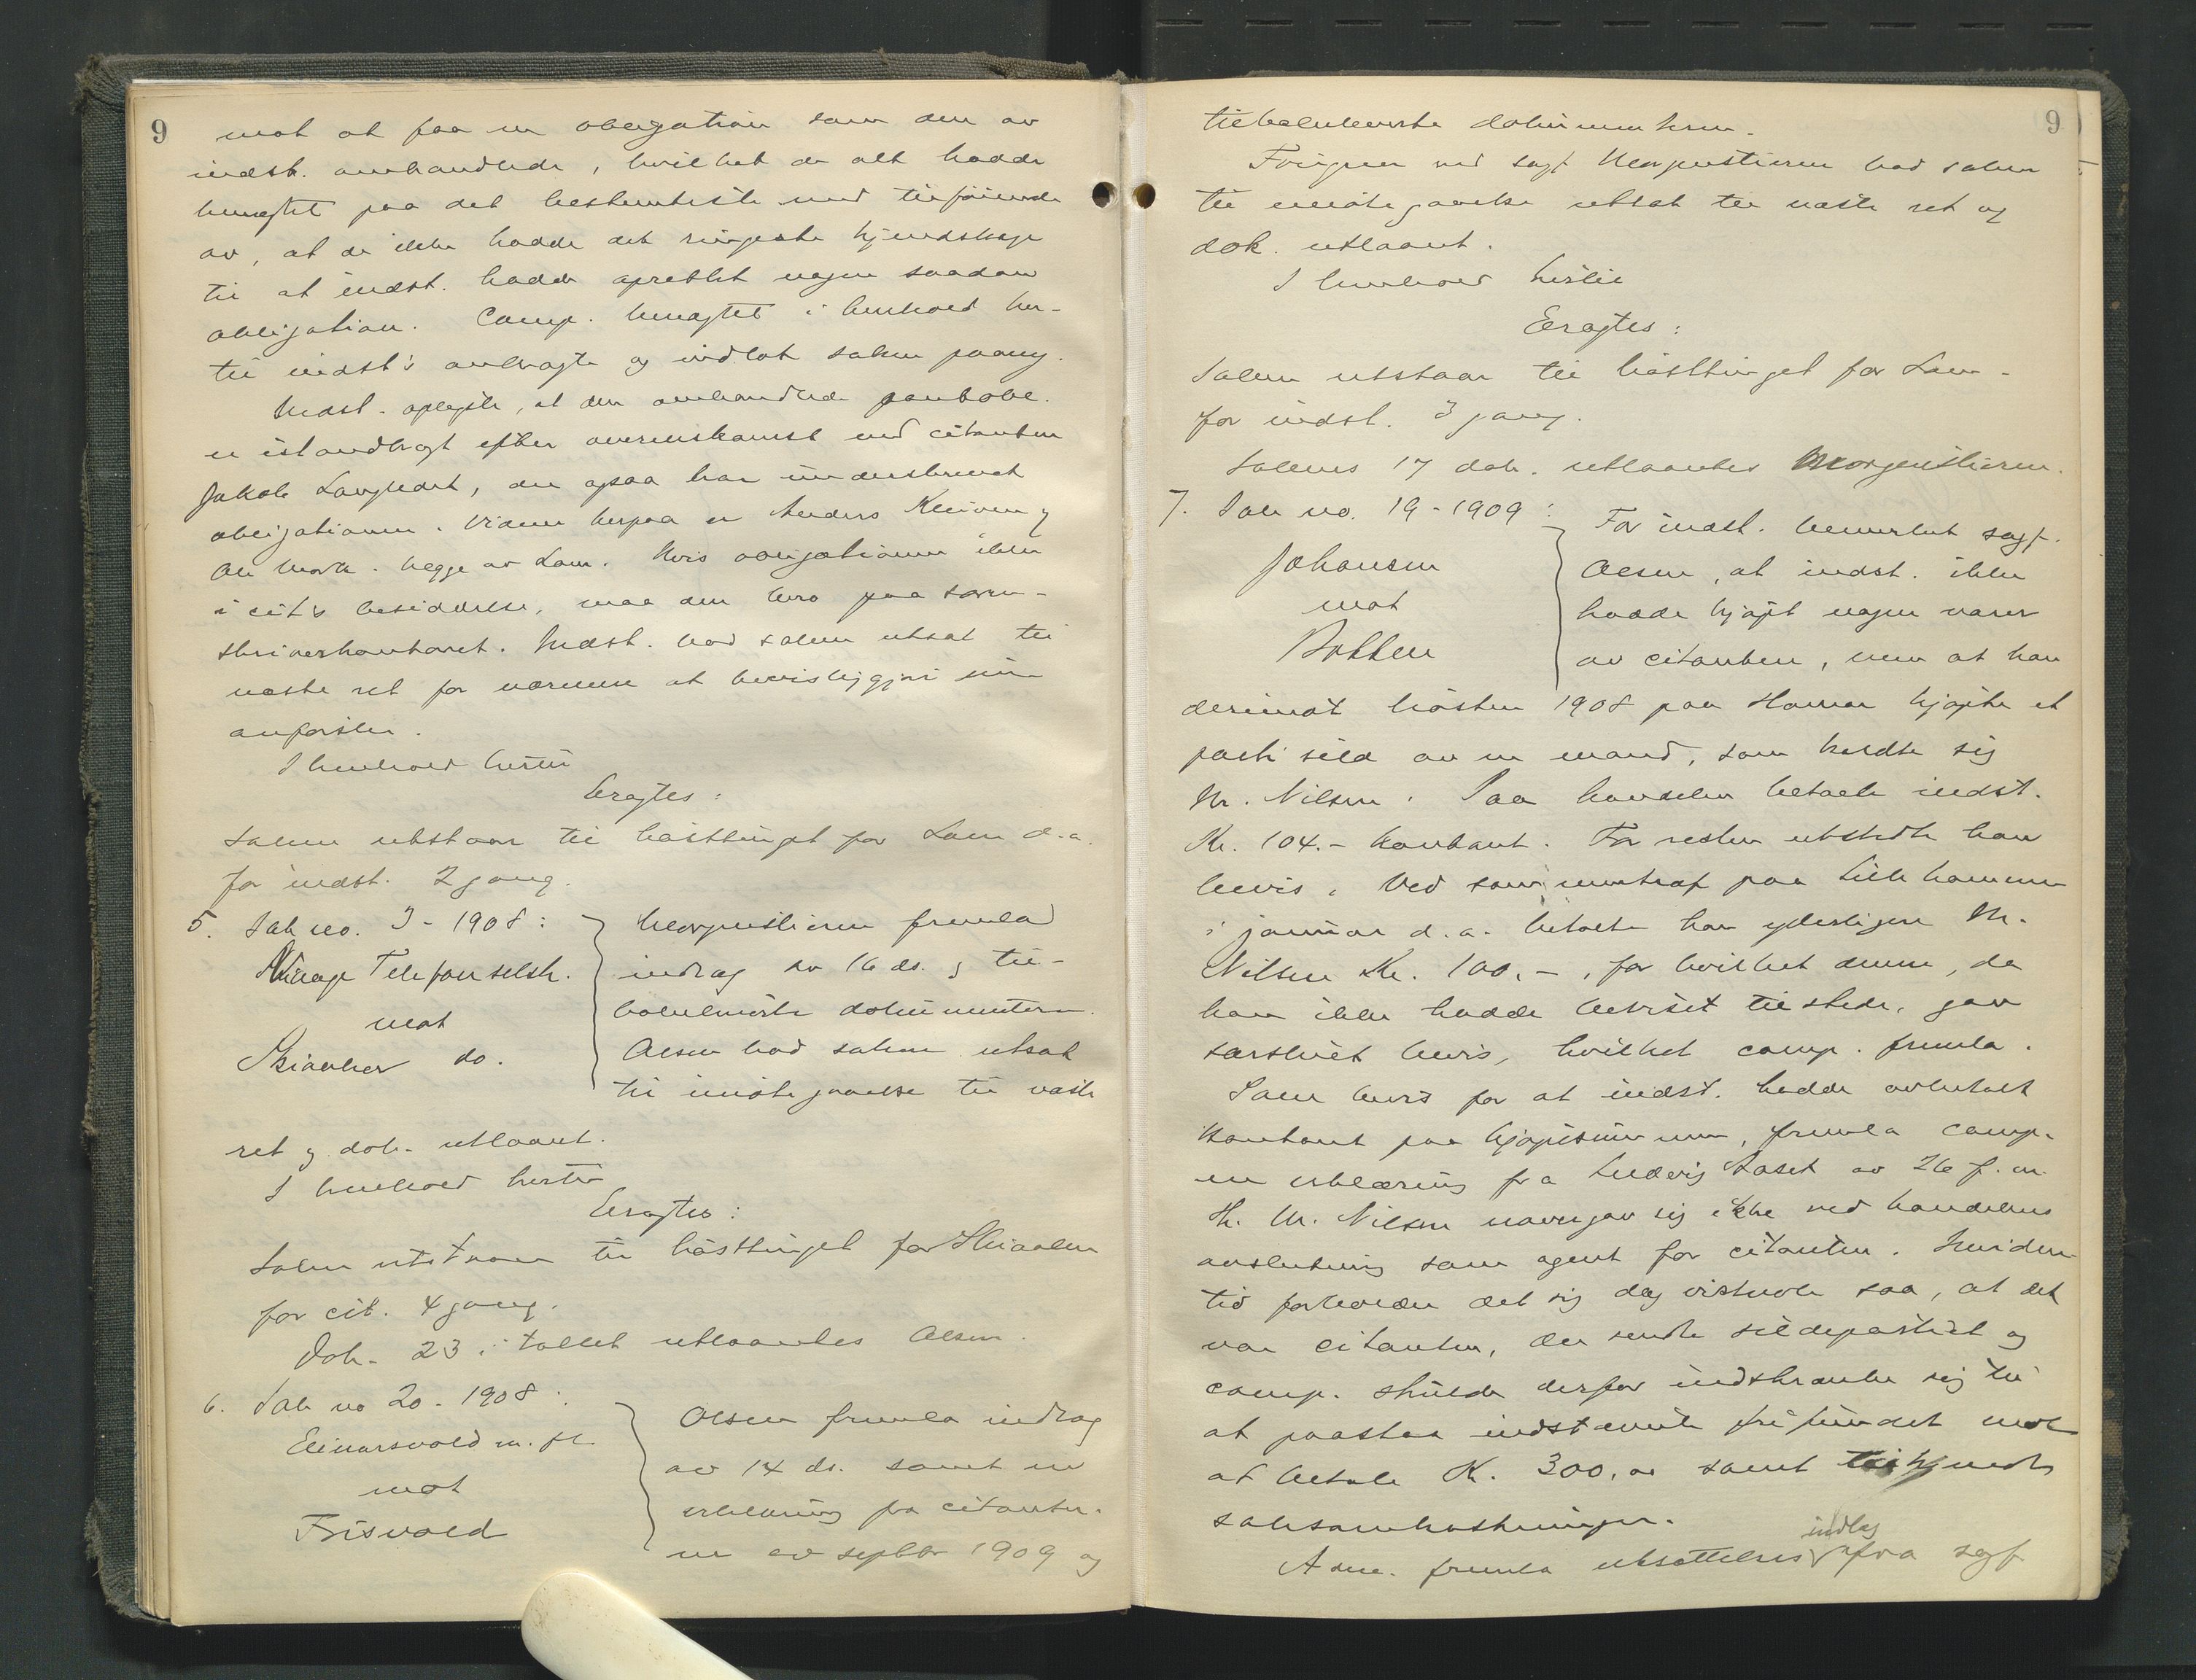 9
mot at faa en obligation som den av
indst. omhandlede, hvilket de alt hadde
benegtet paa det bestemteste med tilføiende
av, at de ikke hadde det ringeste kjendskap
til at indst. hadde oprettet nogen saadan
obligation. Comp. benegtet i henhold her-
til indst's anbragte og indlot saken paany.
Indst. oplyste, at den omhandlede pantobl.
er istandbragt efter overenskomst med citanten
Jakob Langedet, der ogsaa har underskrevet
obligationen. Vidner herpaa er Anders Kleiven og
Ole Mork. begge av Lom. Hvis obligationen ikke
i cit's besiddelse, maa den bero paa soren-
skriverkontoret. Indst. bad saken utsat til
næste ret for nærmere at bevisliggjøre sin
anførsler.
I henhold hertil
Eragtes:
Saken utstaar til høsttinget for Lom d.a.
for indst. 2 gang.
5. Sak no. 3 - 1908:
Vaage Telefonselsk.
mot
Skiaaker do.
Morgenstierne fremla
indlæg av 16 ds. og til-
bakeleverte dokumenterne.
Olsen bad saken utsat
til imøtegaaelse til næste
ret og dok. utlaant.
I henhold hertil
Eragtes:
Saken utstaar til høsttinget for Skiaaker
for cit. 4 gang.
Dok. 23 i tallet utlaantes Olsen.
6. Sak no 20 - 1908:
Einarsvold m. fl.
mot
Frisvold
Olsen fremla indlæg
av 14 ds. samt en
erklæring fra citanter-
ne av septbr 1909 og
9
tilbakeleverte dokumenterne.
Fuldm. ved sagf. Morgenstierne bad saken
til imøtegaaelse utsat til næste ret og
dok. utlaant.
I henhold hertil
Eragtes:
Saken utstaar til høsttinget for Lom
for indst. 3 gang.
Sakens 17 dok. utlaantes Morgenstierne.
7. Sak no. 19 - 1909:
Johansen
mot
Bakken
For indst. bemerket sagf.
Olsen, at indst. ikke
hadde kjøpt nogen varer
av citanten, men at han
derimot høsten 1908 paa Hamar kjøpte et
parti sild av en mand, som kaldte sig
M. Nilsen. Paa handelen betalte indst.
Kr. 104.- kontant. For resten utstedte han
bevis. Ved sammentræf paa Lillehammer
i januar d.a. betalte han yderligere M.
Nilsen Kr. 100.-, for hvilket denne, da
han ikke hadde beviset tilstede, gav
særskilt bevis, hvilket comp. fremla.
Som bevis for at indst. hadde avbetalt
kontant paa kjøpesummen, fremla comp.
en erklæring fra Ludvig Laset av 26 f.m.
Hr. M. Nilsen navngav sig ikke ved handelens
avslutning som agent for citanten. Imidler-
tid forholder det sig dog vistnok saa, at det
var citanten, der sendte sildepartiet og
comp. skulde derfor indskrænke sig til
at paastaa indstævnte frifundet mot
at betale Kr. 300,00 samt tilkjendt
saksomkostninger.
A sm. fremla utsættelses indlæg fra sagf.